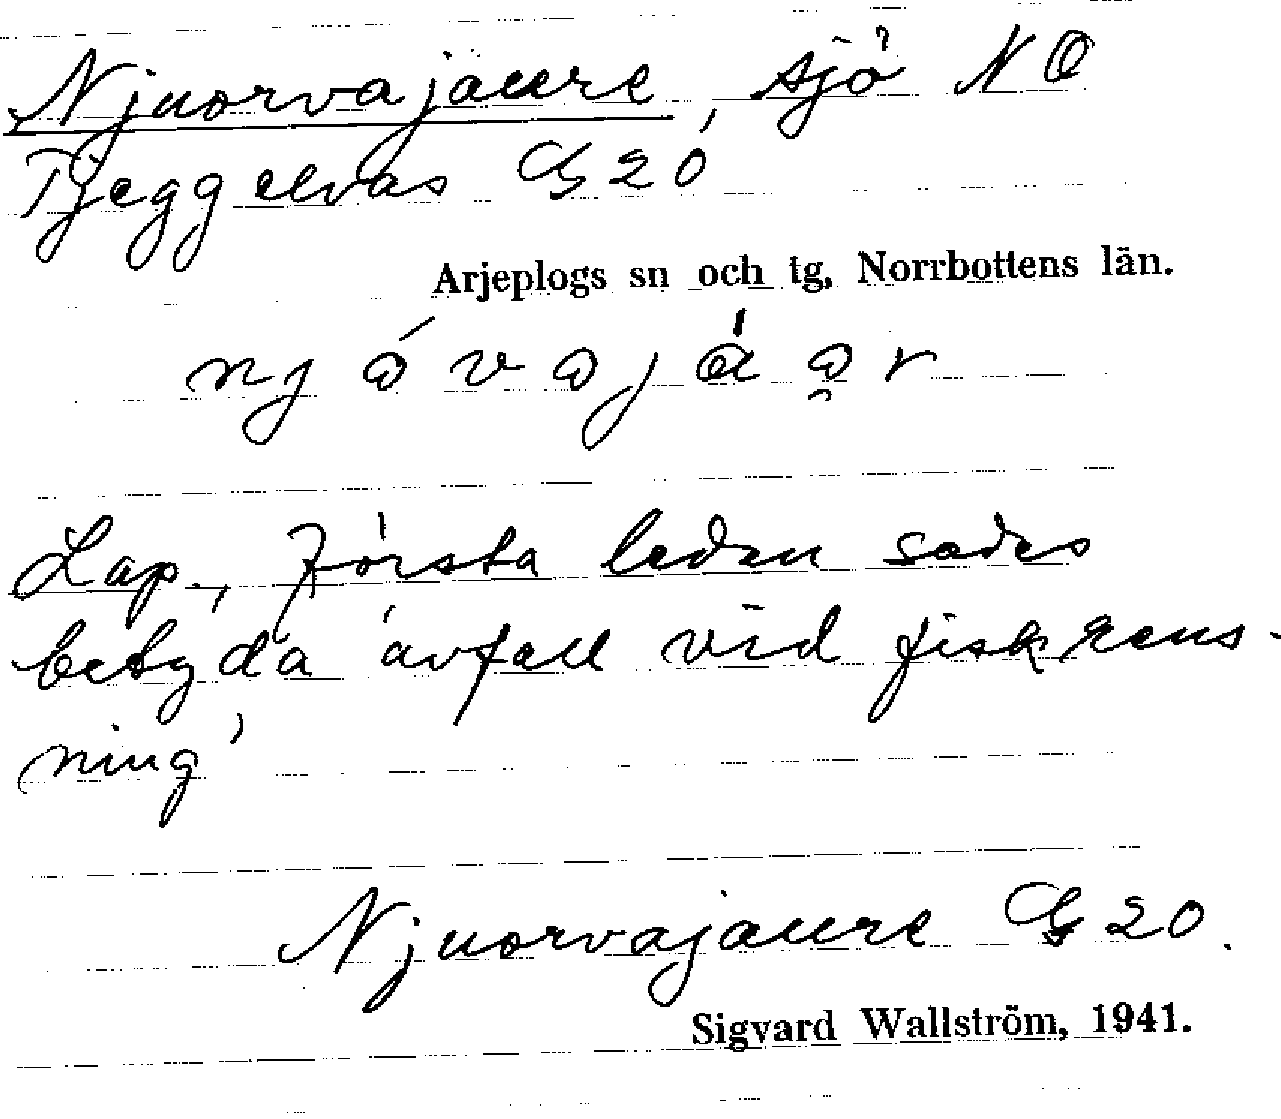 Njuorvajaure, sjö NO
Tjeggelvas G20
Arjeplogs sn och tg, Norrbottens län.
Lap., Första leden sades
betyda 'avfall vid fiskrens-
ning'
Njuorvajaure G20.
Sigvard Wallström, 1941.